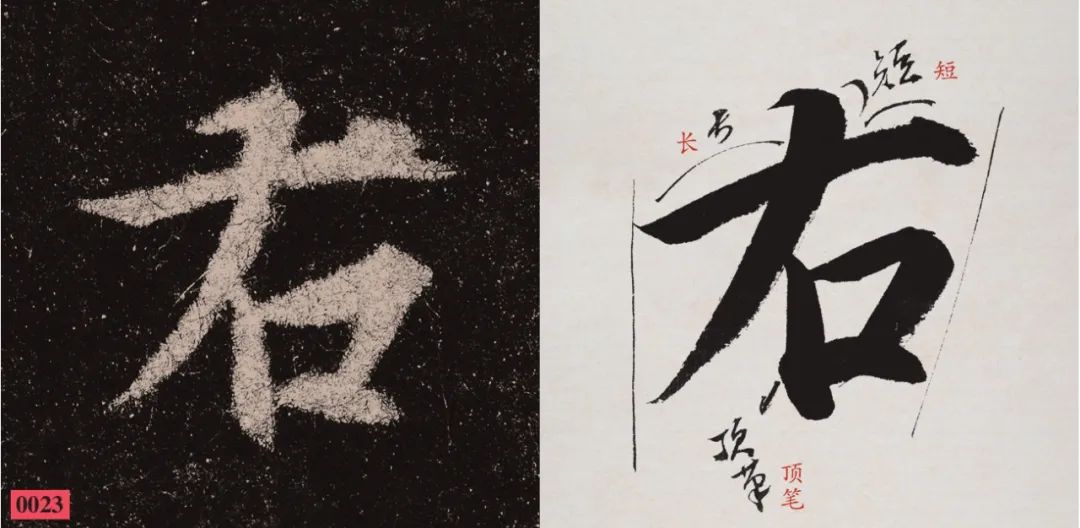 右
0023
右
短
短
长
长
顶笔
顶
笔